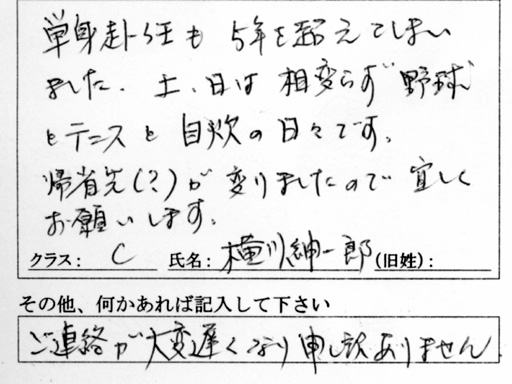 単身赴任も5年を超えてしまい
ました。土、日は相変らず野球
とテニスと自炊の日々です。
帰省先(?)が変りましたので宜しく
お願いします。
クラス: C 氏名: 横川紳一郎 (旧姓):
その他、何かあれば記入して下さい
ご連絡が大変遅くなり申し訳ありません